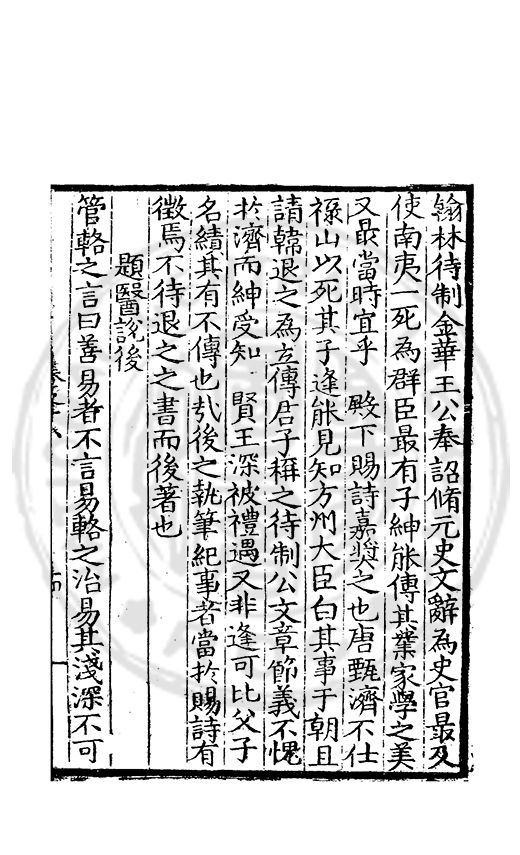 翰林待制金華王公奉 詔脩元史文辭為史官最及
使南夷一死為群臣最有子紳能傳其業家學之美
又最當時宜乎 殿下賜詩嘉奬之也唐甄濟不仕
祿山以死其子逢能見知方州大臣白其事于朝且
請韓退之為立傳君子稱之待制公文章節義不愧
於濟而紳受知 賢王深被禮遇又非逢可比父子
名績其有不傳也㢤後之執筆紀事者當於賜詩有
徵焉不待退之之書而後著也
題醫說後
管輅之言曰善易者不言易輅之治易其淺深不可